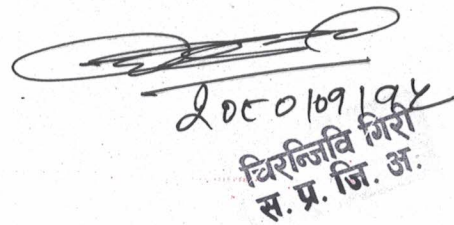 २०८०|०१|१५
चिरन्जिवि गिरी
स. प्र. जि. अ.